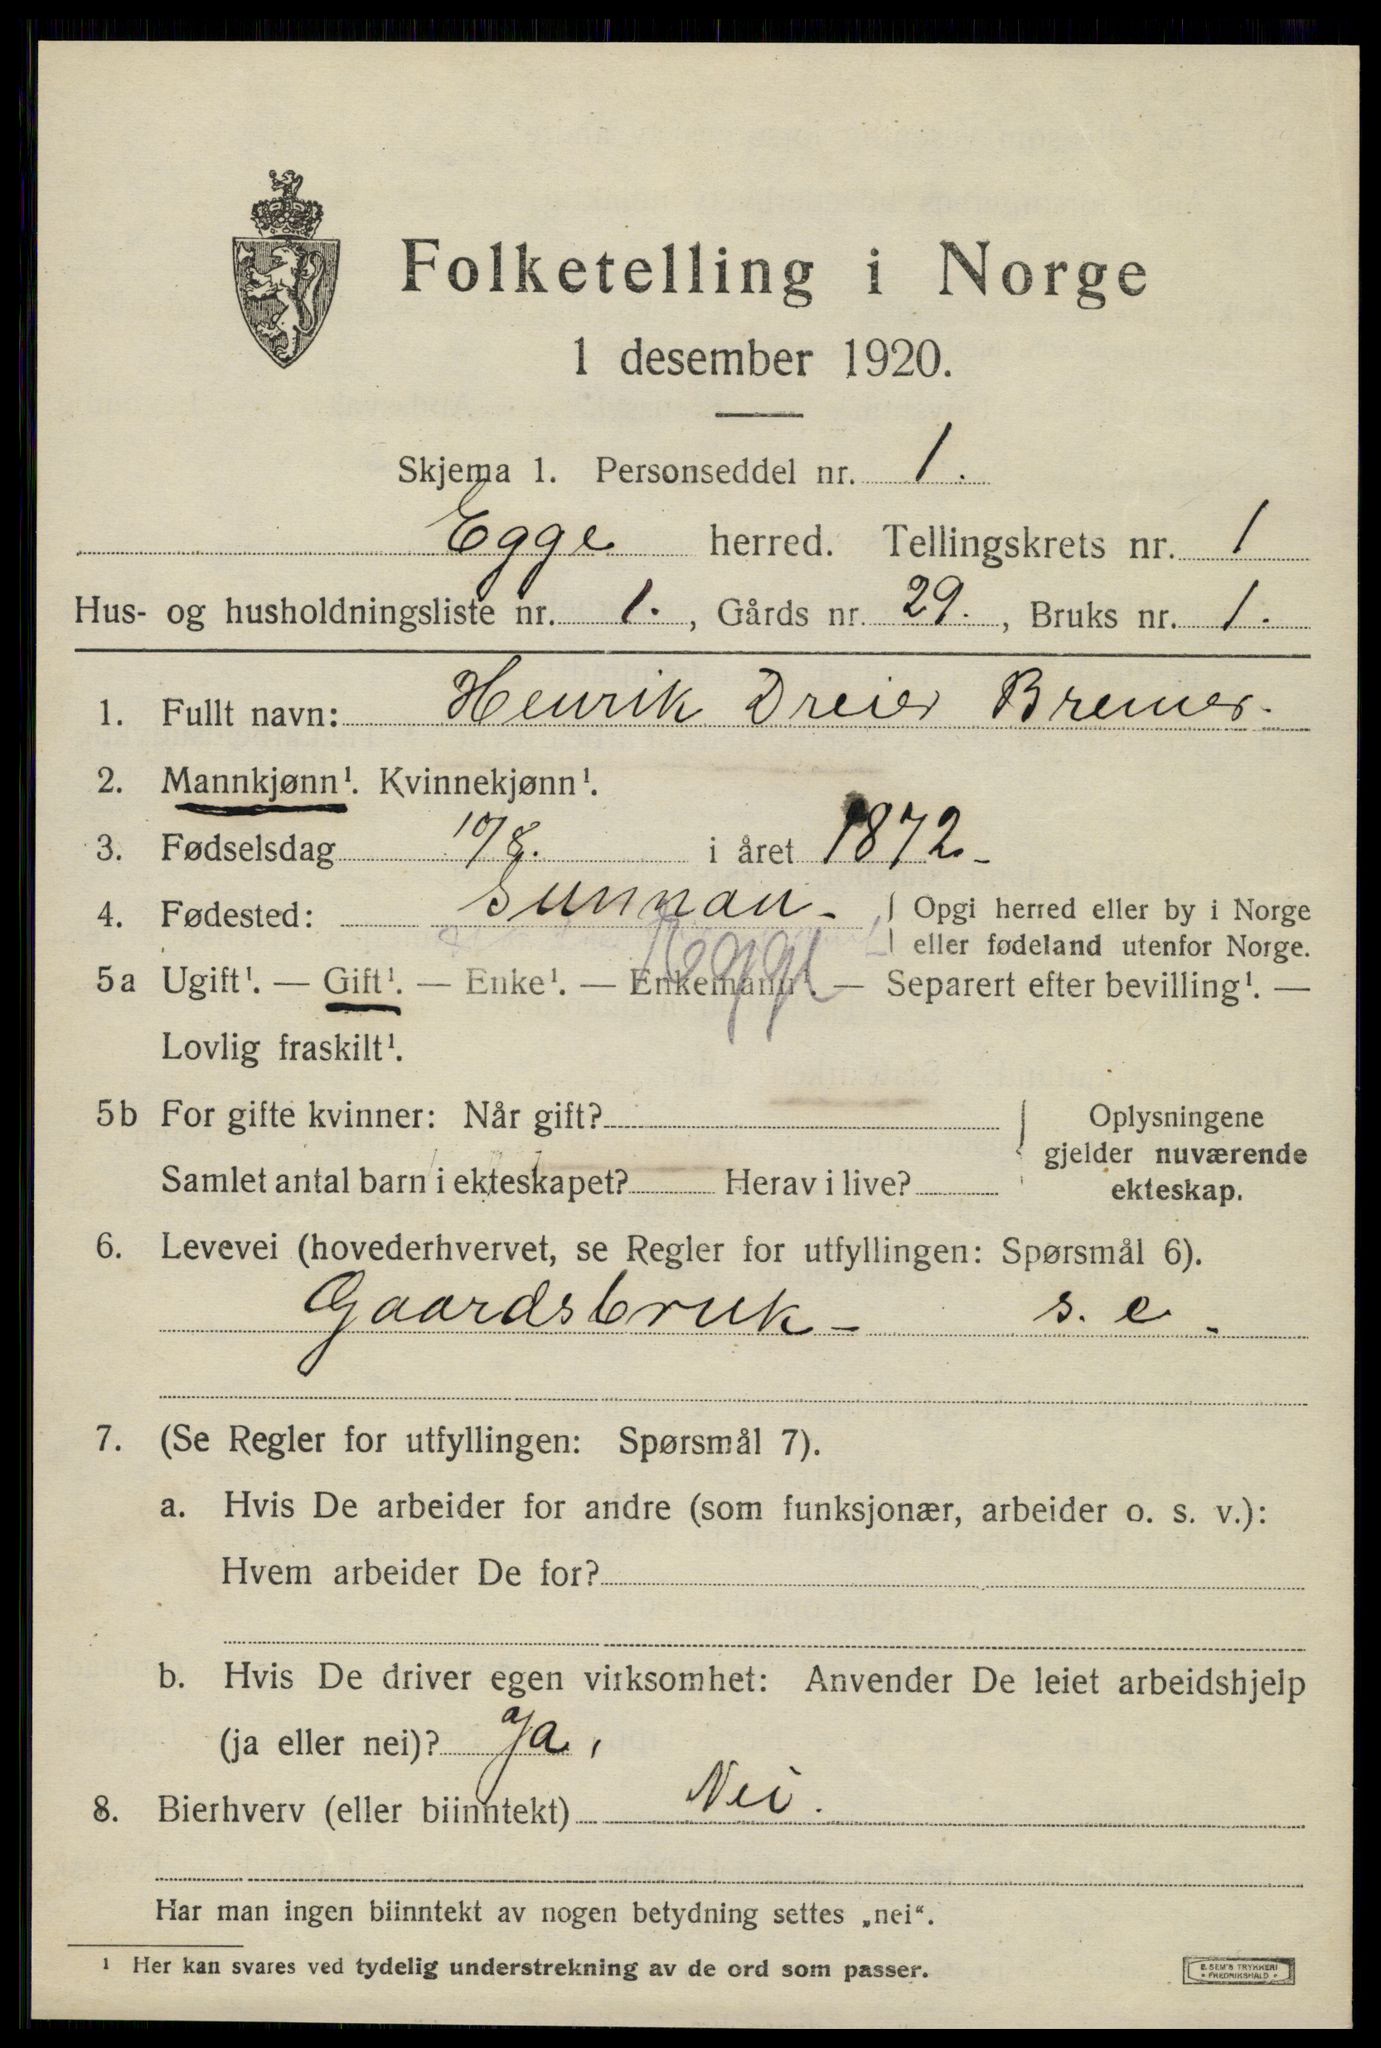 Folketelling i Norge
1 desember 1920.
Skjema 1. Personseddel nr. 1.
Egge herred. Tellingskrets nr. 1
Hus- og husholdningsliste nr. 1., Gårds nr. 29., Bruks nr. 1.
1. Fullt navn: Henrik Dreier Bremer.
2. Mannkjønn¹. Kvinnekjønn¹.
3. Fødselsdag 10/8. i året 1872.
4. Fødested: Sunnan. { Opgi herred eller by i Norge
eller fødeland utenfor Norge.
Egge
5a Ugift¹. — Gift¹. — Enke¹. — Enkemann¹. — Separert efter bevilling¹. —
Lovlig fraskilt¹.
5b For gifte kvinner: Når gift?
Samlet antal barn i ekteskapet? Herav i live?
Oplysningene
gjelder nuværende
ekteskap.
6. Levevei (hovederhvervet, se Regler for utfyllingen: Spørsmål 6).
Gaardsbruk - s. e.
7. (Se Regler for utfyllingen: Spørsmål 7).
a. Hvis De arbeider for andre (som funksjonær, arbeider o. s. v.):
Hvem arbeider De for?
b. Hvis De driver egen virksomhet: Anvender De leiet arbeidshjelp
(ja eller nei)? Ja,
8. Bierhverv (eller biinntekt) Nei.
Har man ingen biinntekt av nogen betydning settes „nei“.
¹ Her kan svares ved tydelig understrekning av de ord som passer.
E. SEM'S TRYKKERI
• FREDRIKSHALD •